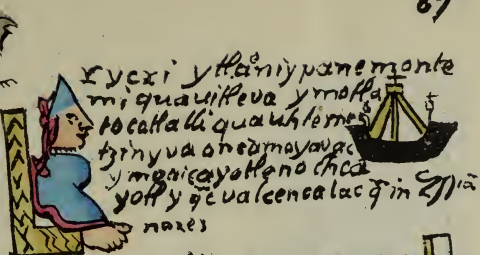 67
ycxi ytlāniypanemonte
miquauitleva ymotla
tocatlalliquauhtemoc
tzinyvaoncamoyavac
ymexicayotlenochca
yotl yq̄c valcencalacq̄ in Espiā
noxes